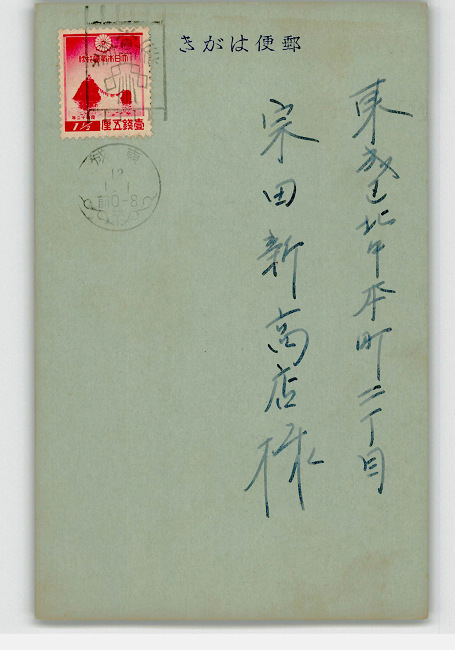 郵便はがき
東成区北中本町二丁目
宗田新商店様
大日本帝国郵便
壹錢五厘
1½
12
1.1
前0-8